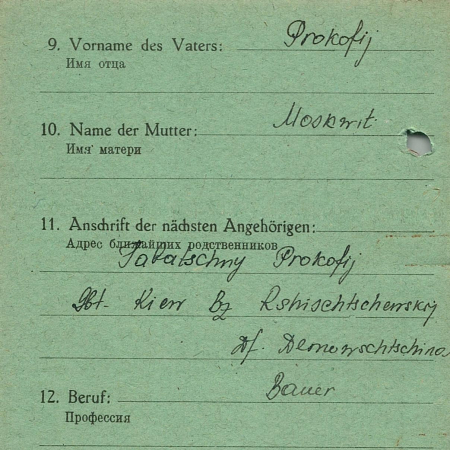 9. Vorname des Vaters: Prokofij
Имя отца
10. Name der Mutter: Moskwit
Имя матери
11. Anschrift der nächsten Angehörigen:
Адрес ближайших родственников
Tabatschny Prokofij
Gbt. Kiew Bz Rshischtschewskij
Df. Demowschtschina
12. Beruf: Bauer
Профессия